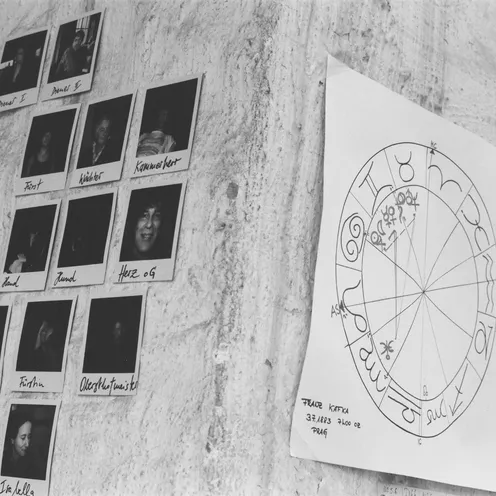 Diener II
Fürst
Wächter
Kammerherr
Hund
Hund
Herz oG
Fürstin
Obersthofmeister
Isabella
FRANZ KAFKA
3.7.1883 7h00 OZ
PRAG